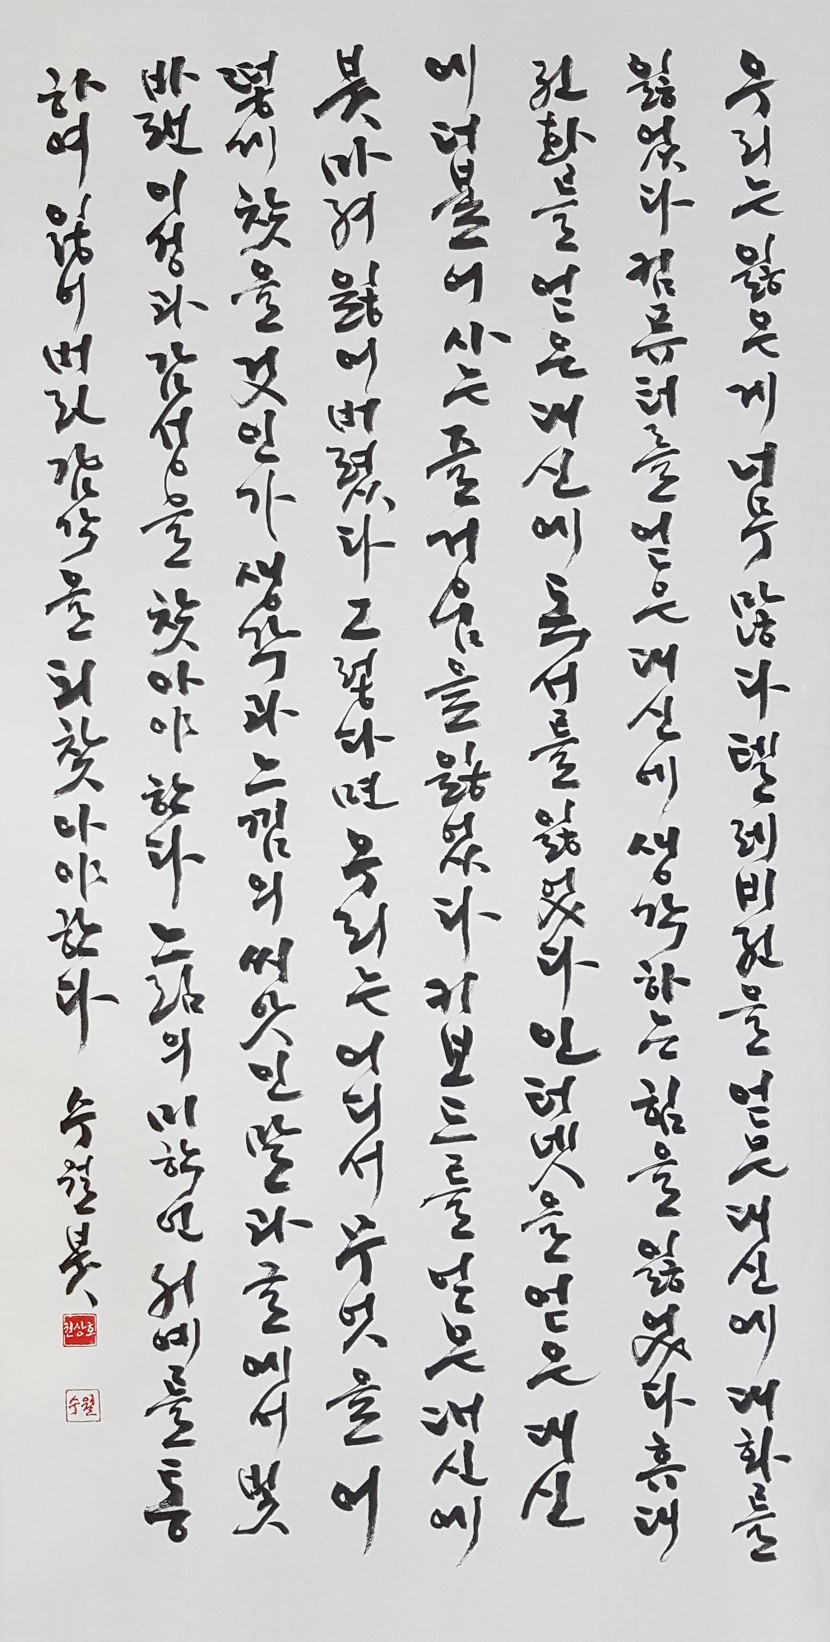 우리는 잃은 게 너무 많다 텔레비전을 얻은 대신에 대화를
잃었다 컴퓨터를 얻은 대신에 생각하는 힘을 잃었다 휴대
전화를 얻은 대신에 독서를 잃었다 인터넷을 얻은 대신
에 더불어 사는 즐거움을 잃었다 키보드를 얻은 대신에
붓마저 잃어버렸다 그렇다면 우리는 어디서 무엇을 어
떻게 찾을 것인가 생각과 느낌의 씨앗인 말과 글에서 빛
바랜 이성과 감성을 찾아야 한다 느림의 미학인 서예를 통
하여 잃어버린 감각을 되찾아야 한다 수월 붓
권상호
수월